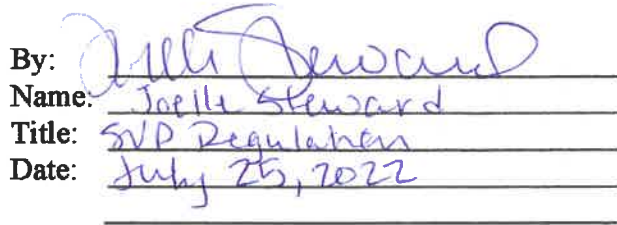 By: Joelle Steward
Name: Joelle Steward
Title: SVP Regulation
Date: July 25, 2022